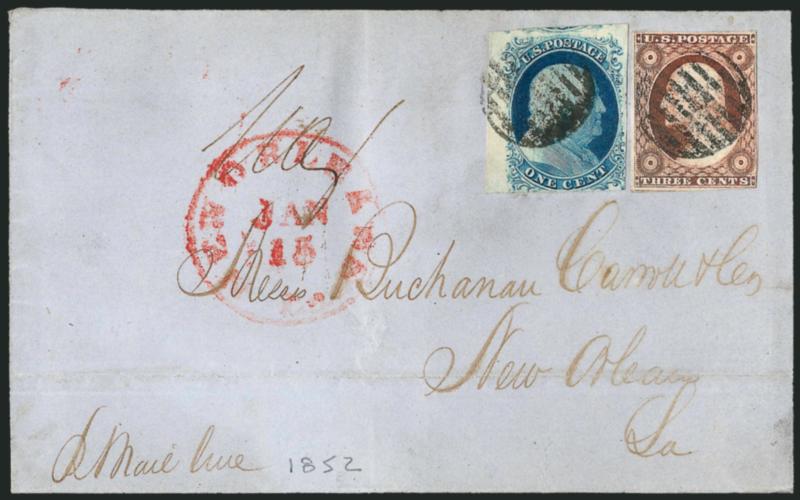 U.S. POSTAGE
ONE CENT
U.S. POSTAGE
THREE CENTS
Way
N. ORLEANS
JAN
15
Messrs Buchanan Carroll & Co
New Orleans
La
Mail line 1852